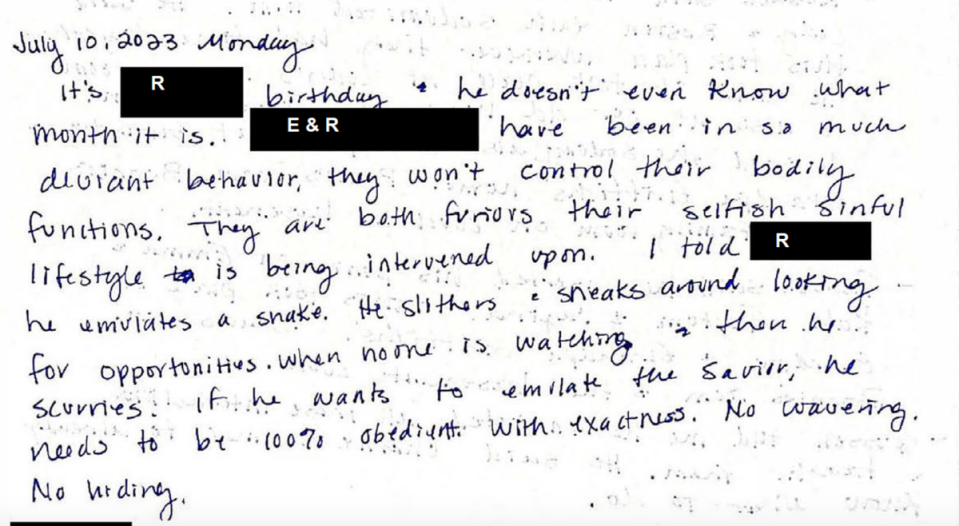 July 10, 2023 Monday
It's R birthday & he doesn't even know what
month it is. E & R have been in so much
deviant behavior, they won't control their bodily
functions. They are both furiors their selfish sinful
lifestyle is being intervened upon. I told R
he emulates a snake. He slithers & sneaks around looking
for opportunities when no one is watching & then he
scurries. If he wants to emulate the Savior, he
needs to be 100% obedient with exactness. No wavering.
No hiding.